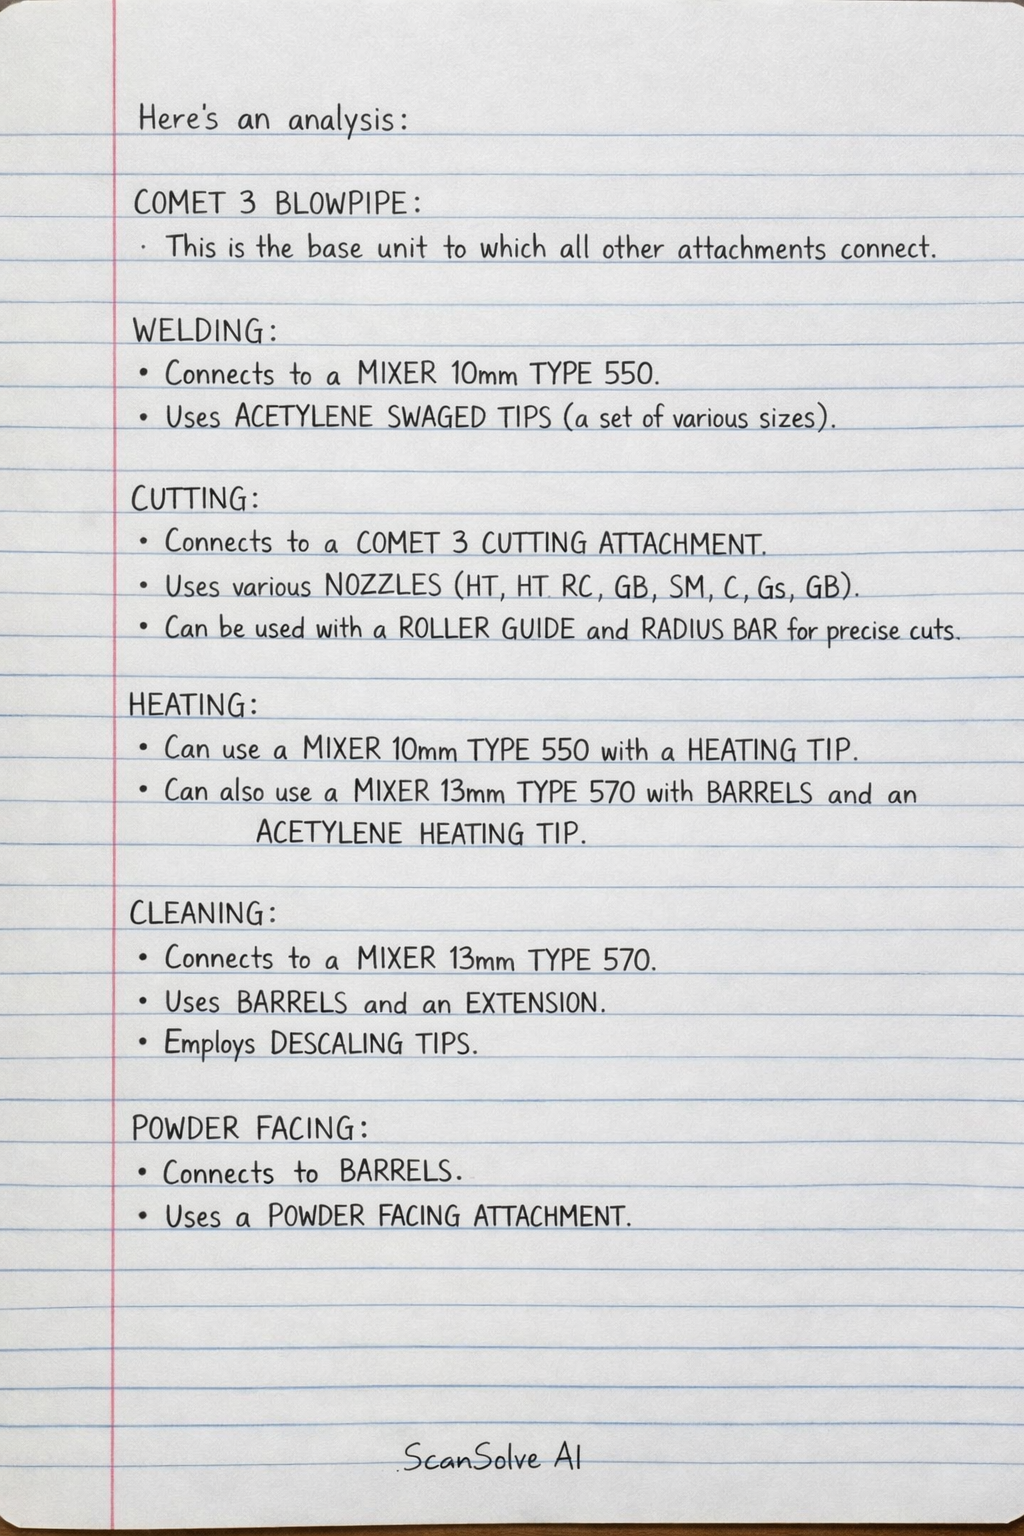 Here's an analysis:
COMET 3 BLOWPIPE:
· This is the base unit to which all other attachments connect.
WELDING:
• Connects to a MIXER 10mm TYPE 550.
• Uses ACETYLENE SWAGED TIPS (a set of various sizes).
CUTTING:
• Connects to a COMET 3 CUTTING ATTACHMENT.
• Uses various NOZZLES (HT, HT RC, GB, SM, C, Gs, GB).
• Can be used with a ROLLER GUIDE and RADIUS BAR for precise cuts.
HEATING:
• Can use a MIXER 10mm TYPE 550 with a HEATING TIP.
• Can also use a MIXER 13mm TYPE 570 with BARRELS and an
ACETYLENE HEATING TIP.
CLEANING:
• Connects to a MIXER 13mm TYPE 570.
• Uses BARRELS and an EXTENSION.
• Employs DESCALING TIPS.
POWDER FACING:
• Connects to BARRELS.
• Uses a POWDER FACING ATTACHMENT.
ScanSolve AI